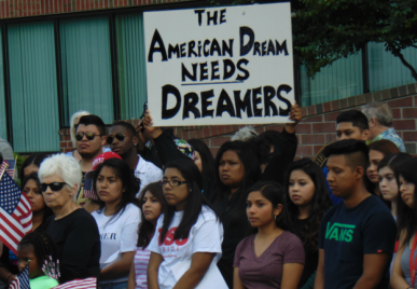 THE
AMERICAN DREAM
NEEDS
DREAMERS
VANS